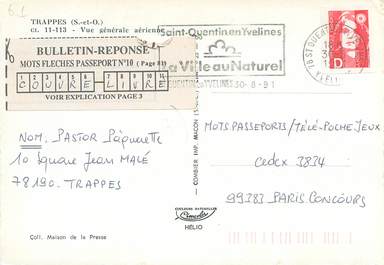 TRAPPES (S.-et-O.)
CI. 11-113 - Vue générale aérienne
BULLETIN-REPONSE
MOTS FLECHES PASSEPORT N°10 (Page 81)
1 2 3 4 5 6 7 8 9 10 11
COUVRE LIVRE
VOIR EXPLICATION PAGE 3
Saint-Quentin en Yvelines
La Ville au Naturel
QUENTIN YVELINES 30-8-91
D
NOM. PASTOR Pâquerette
10 Square Jean MACÉ
78190. TRAPPES
COMBIER IMP. MACON
MOTS PASSEPORTS/TÉLÉ-POCHE JEUX
Cedex 3834
99383 PARIS CONCOURS
COULEURS NATURELLES
Cimcolor
HÉLIO
Coll. Maison de la Presse